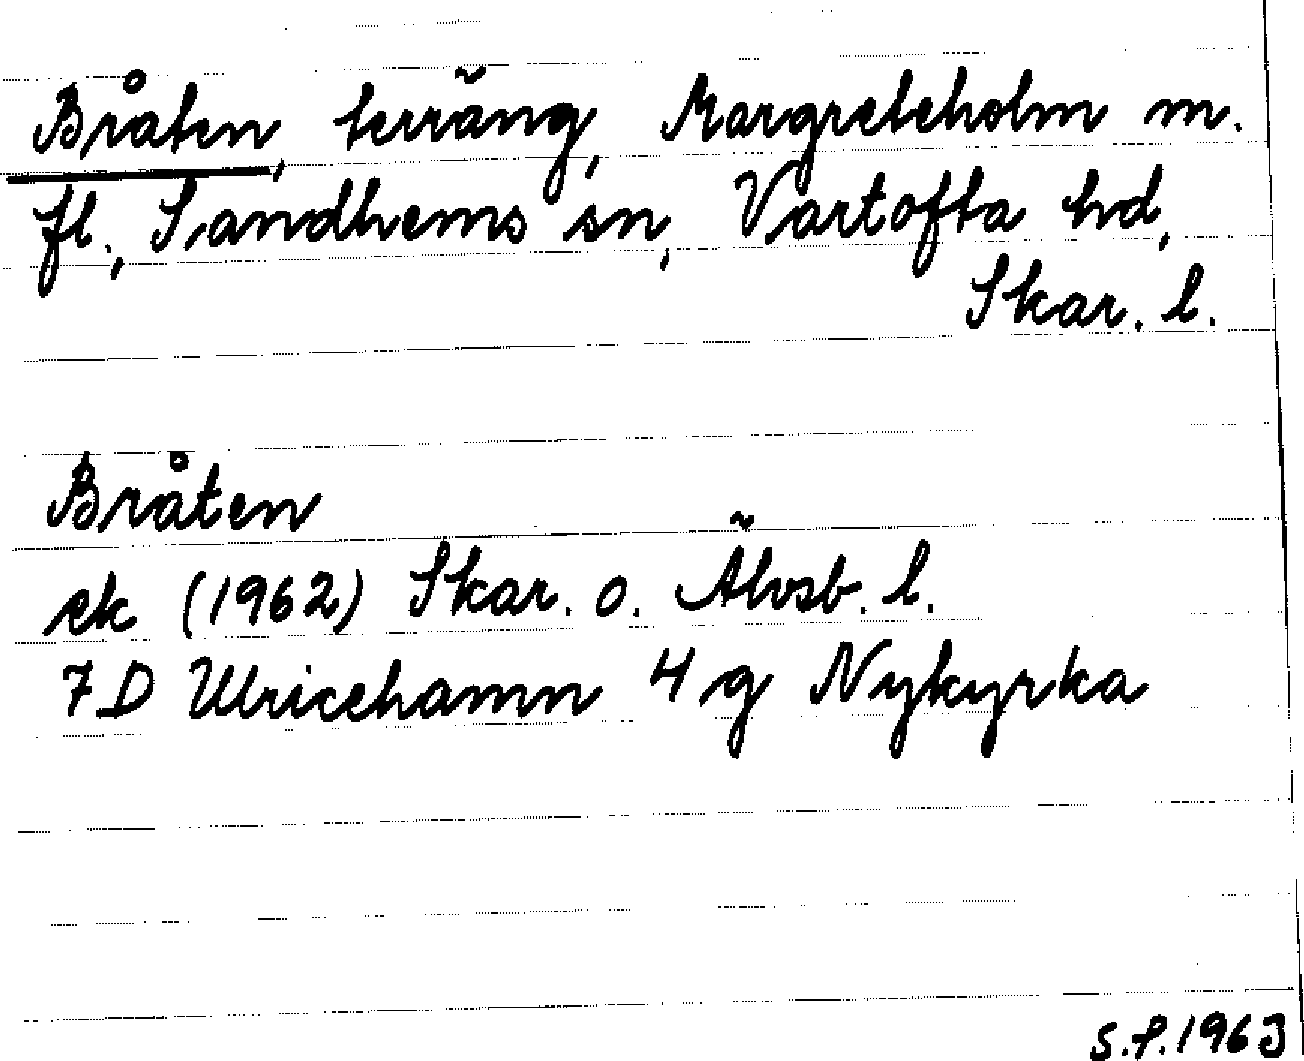 Bråten, terräng, Margreteholm m.
fl., Sandhems sn, Vartofta hd,
Skar. l.
Bråten
ek (1962) Skar. o. Älvsb. l.
7D Ulricehamn 4 g Nykyrka
S.P.1963